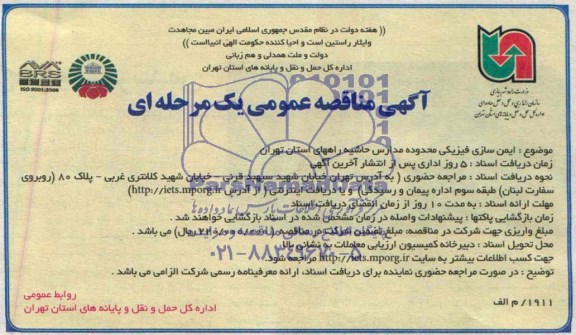 (( هفته دولت در نظام مقدس جمهوری اسلامی ایران مبین مجاهدت
وایثار راستین است و احیا کننده حکومت الهی انبیااست ))
دولت و ملت همدلی و هم زبانی
اداره کل حمل و نقل و پایانه های استان تهران
BRS
ISO 9001:2008
وزارت راه و شهرسازی
سازمان راهداری و حمل و نقل جاده ای
آگهی مناقصه عمومی یک مرحله ای
موضوع : ایمن سازی فیزیکی محدوده مدارس حاشیه راههای استان تهران
زمان دریافت اسناد : ۵ روز اداری پس از انتشار آخرین آگهی
نحوه دریافت اسناد : مراجعه حضوری ( به آدرس تهران خیابان شهید سپهبد قرنی – خیابان شهید کلانتری غربی – پلاک ۸۰ (روبروی
سفارت لبنان) طبقه سوم اداره پیمان و رسیدگی) و یا دریافت اینترنتی ( از آدرس http://iets.mporg.ir)
مهلت ارائه اسناد : به مدت ۱۰ روز از زمان انقضای دریافت اسناد
زمان بازگشایی پاکتها : پیشنهادات واصله در زمان مشخص شده در اسناد بازگشایی خواهند شد .
مبلغ واریزی جهت شرکت در مناقصه: مبلغ تضمین شرکت در مناقصه ( ریال) می باشد .
محل تحویل اسناد : دبیرخانه کمیسیون ارزیابی معاملات به نشانی بالا
جهت کسب اطلاعات بیشتر به سایت http://iets.mporg.ir مراجعه شود.
توضیح : در صورت مراجعه حضوری نماینده برای دریافت اسناد، ارائه معرفینامه رسمی شرکت الزامی می باشد .
۰۲۱-۸۸۳۴۹۶۷۰-۵
روابط عمومی
اداره کل حمل و نقل و پایانه های استان تهران
۱۹۱۱/ م الف